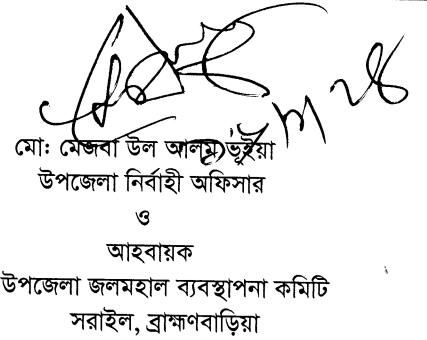 মো: মেজবা উল আলম ভূইয়া
উপজেলা নির্বাহী অফিসার
ও
আহবায়ক
উপজেলা জলমহাল ব্যবস্থাপনা কমিটি
সরাইল, ব্রাহ্মণবাড়িয়া